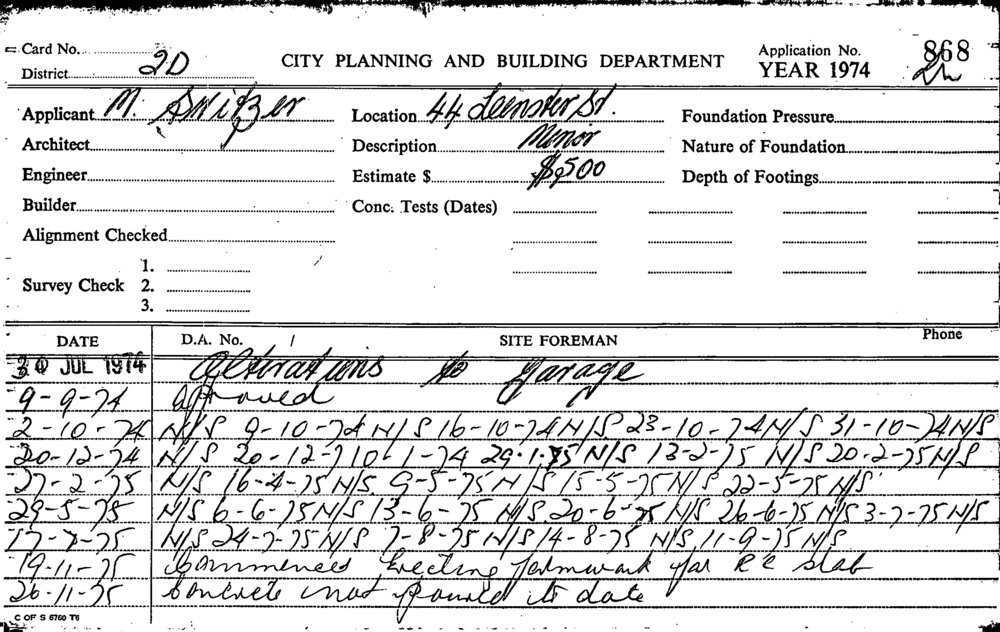 Card No. CITY PLANNING AND BUILDING DEPARTMENT Application No. 868
District 2D YEAR 1974
Applicant M. Switzer Location 44 Leinster St. Foundation Pressure
Architect Description Minor Nature of Foundation
Engineer Estimate $ $500 Depth of Footings
Builder Conc. Tests (Dates)
Alignment Checked
1.
Survey Check 2.
3.
DATE D.A. No. / SITE FOREMAN Phone
30 JUL 1974 Alterations to Garage
9-9-74 Approved
2-10-74 N/S 9-10-74 N/S 16-10-74 N/S 23-10-74 N/S 31-10-74 N/S
20-12-74 N/S 20-12-7 10-1-74 29-1-75 N/S 13-2-75 N/S 20-2-75 N/S
27-2-75 N/S 16-4-75 N/S 9-5-75 N/S 15-5-75 N/S 22-5-75 N/S
29-5-75 N/S 6-6-75 N/S 13-6-75 N/S 20-6-75 N/S 26-6-75 N/S 3-7-75 N/S
17-7-75 N/S 24-7-75 N/S 7-8-75 N/S 14-8-75 N/S 11-9-75 N/S
19-11-75 Commenced Erecting formwork for RC slab
26-11-75 Concrete not poured to date
C OF S 6750 T6